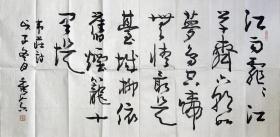 江雨霏霏江
草齊六朝如
夢鳥空啼
無情最是
臺城柳依
舊煙籠十
里堤
韋莊詩